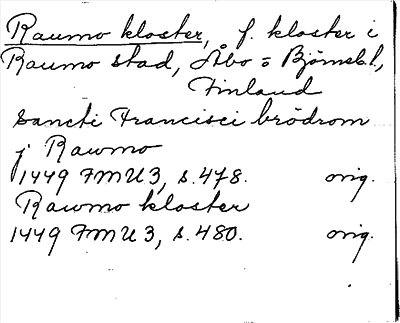 Raumo kloster, f. kloster i
Raumo stad, Åbo o Björnebl,
Finland
Sancti Francisci brödrom
j Rawmo
1449 FMU 3, s. 478. orig.
Rawmo kloster
1449 FMU 3, s. 480. orig.